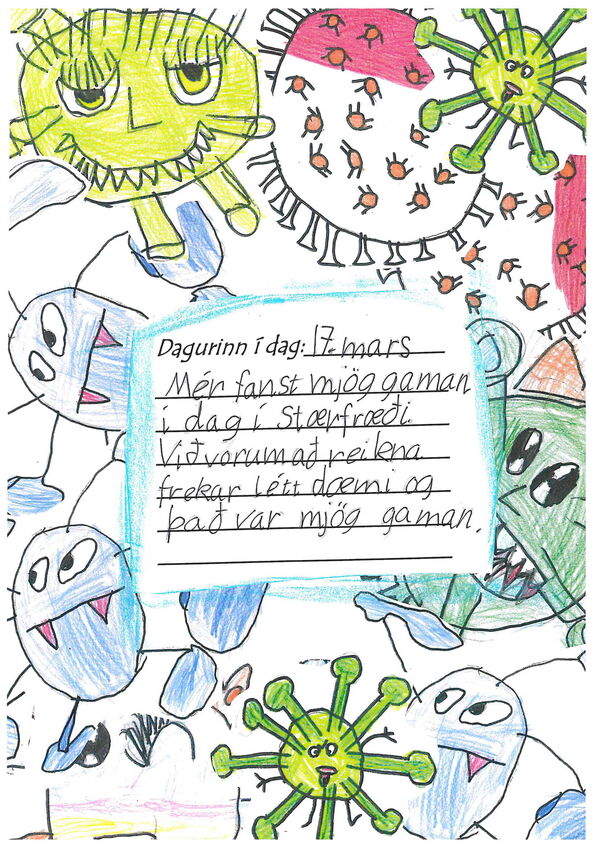 Dagurinn í dag: 17. mars
Mér fanst mjög gaman
í dag í Stærfræði
Við vorum að reikna
frekar létt dæmi og
það var mjög gaman.